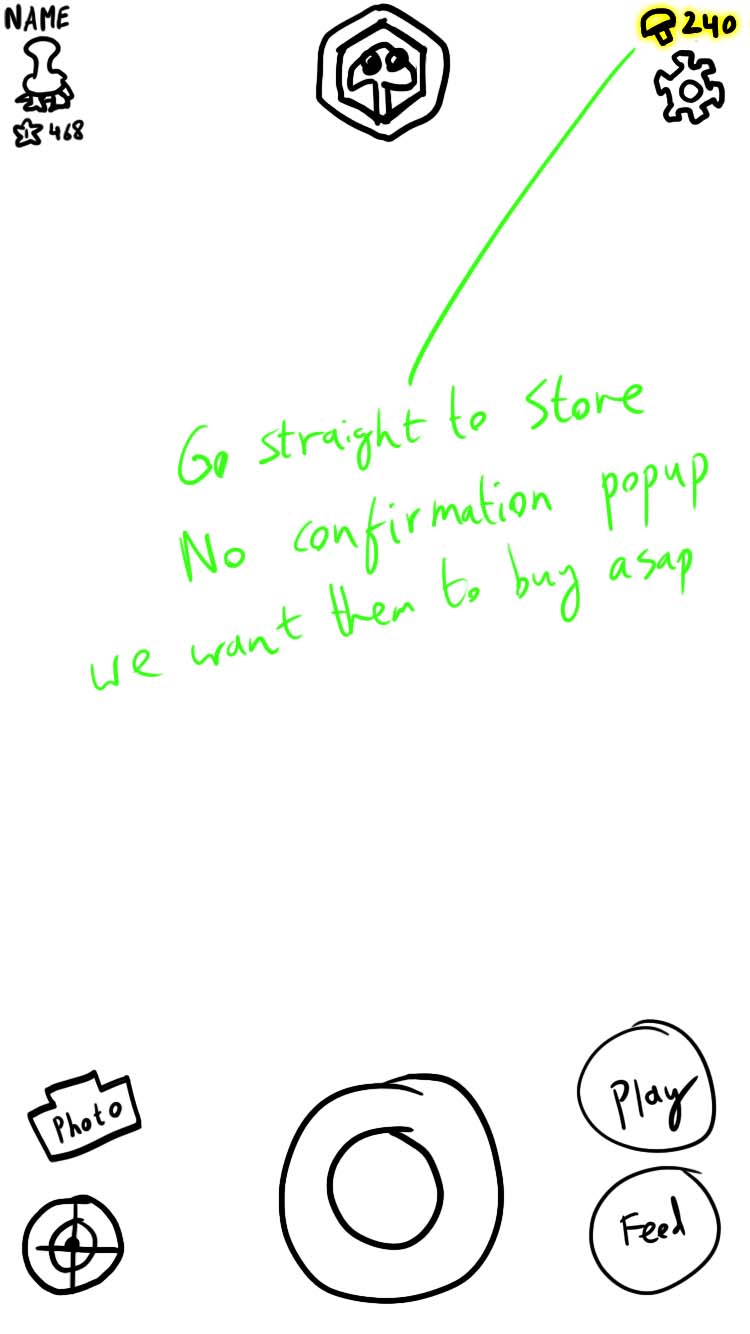 NAME
240
1 468
Go straight to store
No confirmation popup
we want them to buy asap
Photo
Play
Feed